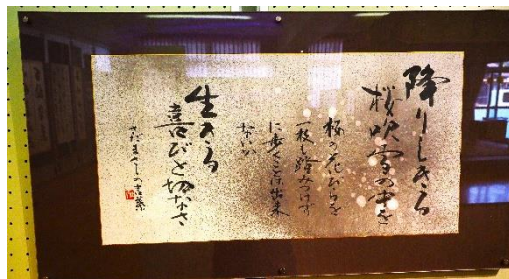 降りしきる
桜吹雪の中を
桜の花びらを
一枚も踏みつけず
に歩くことは出来
ないか
生きる
喜びと切なさ
だまさしの言葉